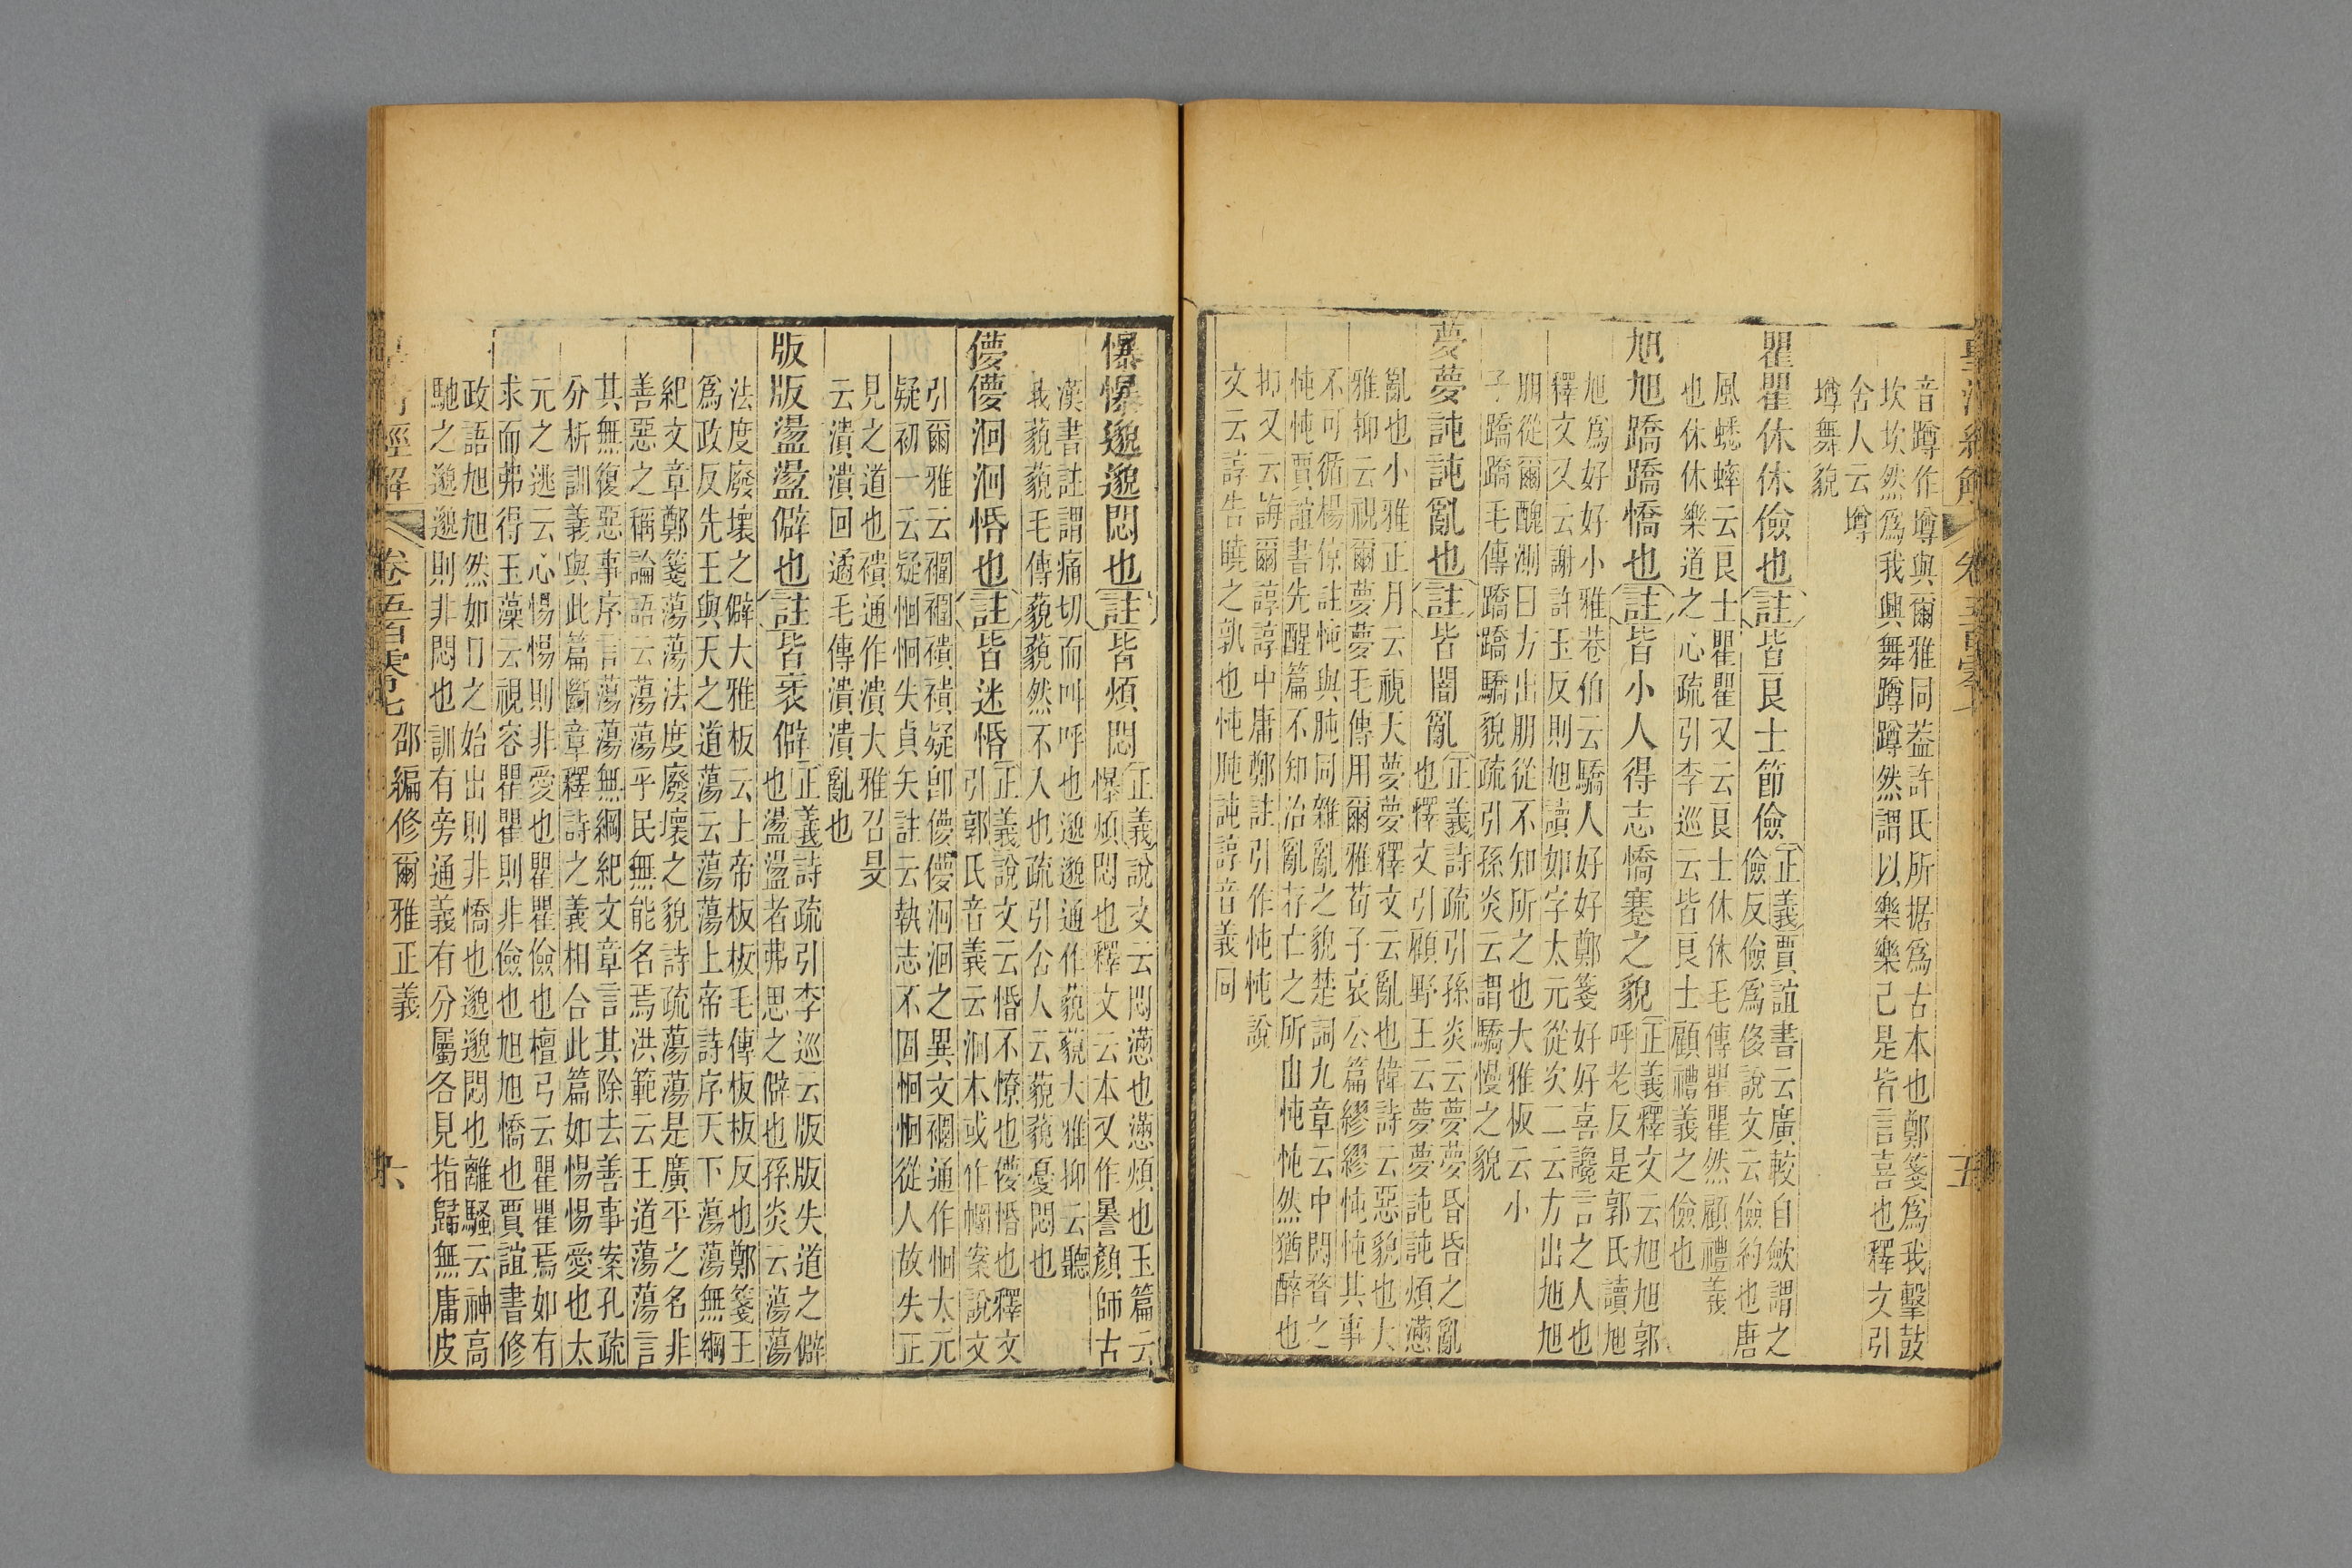 音蹲作壿與爾雅同葢許氏所据爲古本也鄭箋爲我擊鼓
坎坎然爲我興舞蹲蹲然謂以樂樂己是皆言喜也釋文引
舍人云壿
壿舞貌
瞿瞿休休儉也註皆良士節儉正義賈誼書云廣較自斂謂之
儉反儉爲侈說文云儉約也唐
風蟋蟀云良士瞿瞿又云良士休休毛傳瞿瞿然顧禮義
也休休樂道之心疏引李巡云皆良士顧禮義之儉也
旭旭蹻蹻憍也註皆小人得志憍蹇之貌正義釋文云旭旭郭
呼老反是郭氏讀旭
旭爲好好小雅巷伯云驕人好好鄭箋好好喜讒言之人也
釋文又云謝許玉反則旭讀如字太元從次二云方出旭旭
朋從爾醜測曰方出朋從不知所之也大雅板云小
子蹻蹻毛傳蹻蹻驕貌疏引孫炎云謂驕慢之貌
夢夢訰訰亂也註皆闇亂正義詩疏引孫炎云夢夢昏昏之亂
也釋文引顧野王云夢夢訰訰煩懣
亂也小雅正月云視天夢夢釋文云亂也韓詩云惡貌也大
雅抑云視爾夢夢毛傳用爾雅荀子哀公篇繆繆忳忳其事
不可循楊倞註忳與肫同雜亂之貌楚詞九章云中悶瞀之
忳忳賈誼書先醒篇不知治亂存亡之所由忳忳然猶醉也
抑又云誨爾諄諄中庸鄭註引作忳忳說
文云諄告曉之孰也忳肫訰諄音義同
爆爆邈邈悶也註皆煩悶正義說文云悶懣也懣煩也玉篇云
爆煩悶也釋文云本又作㬥顏師古
漢書註謂痛切而叫呼也邈邈通作藐藐大雅抑云聽
我藐藐毛傳藐藐然不人也疏引舍人云藐藐憂悶也
儚儚洄洄惛也註皆迷惛正義說文云惛不憭也儚惛也釋文
引郭氏音義云洄木或作㥜案說文
引爾雅云襉襉襀襀疑卽儚儚洄洄之異文襉通作恛太元
疑初一云疑恛恛失貞矢註云執志不固恛恛從人故失正
見之道也襀通作潰大雅召旻
云潰潰回遹毛傳潰潰亂也
版版盪盪僻也註皆衺僻正義詩疏引李巡云版版失道之僻
也盪盪者弗思之僻也孫炎云蕩蕩
法度廢壞之僻大雅板云上帝板板毛傳板板反也鄭箋王
爲政反先王與天之道蕩云蕩蕩上帝詩序天下蕩蕩無綱
紀文章鄭箋蕩蕩法度廢壞之貌詩疏蕩蕩是廣平之名非
善惡之稱論語云蕩蕩乎民無能名焉洪範云王道蕩蕩言
其無復惡事序言蕩蕩無綱紀文章言其除去善事案孔疏
分析訓義與此篇斷章釋詩之義相合此篇如惕惕愛也太
元之逃云心惕惕則非愛也瞿瞿儉也檀弓云瞿瞿焉如有
求而弗得玉藻云視容瞿瞿則非儉也旭旭憍也賈誼書修
政語旭旭然如日之始出則非憍也邈邈悶也離騷云神高
馳之邈邈則非悶也訓有旁通義有分屬各見指歸無庸皮
經解 卷五百零七 邵編修爾雅正義 六